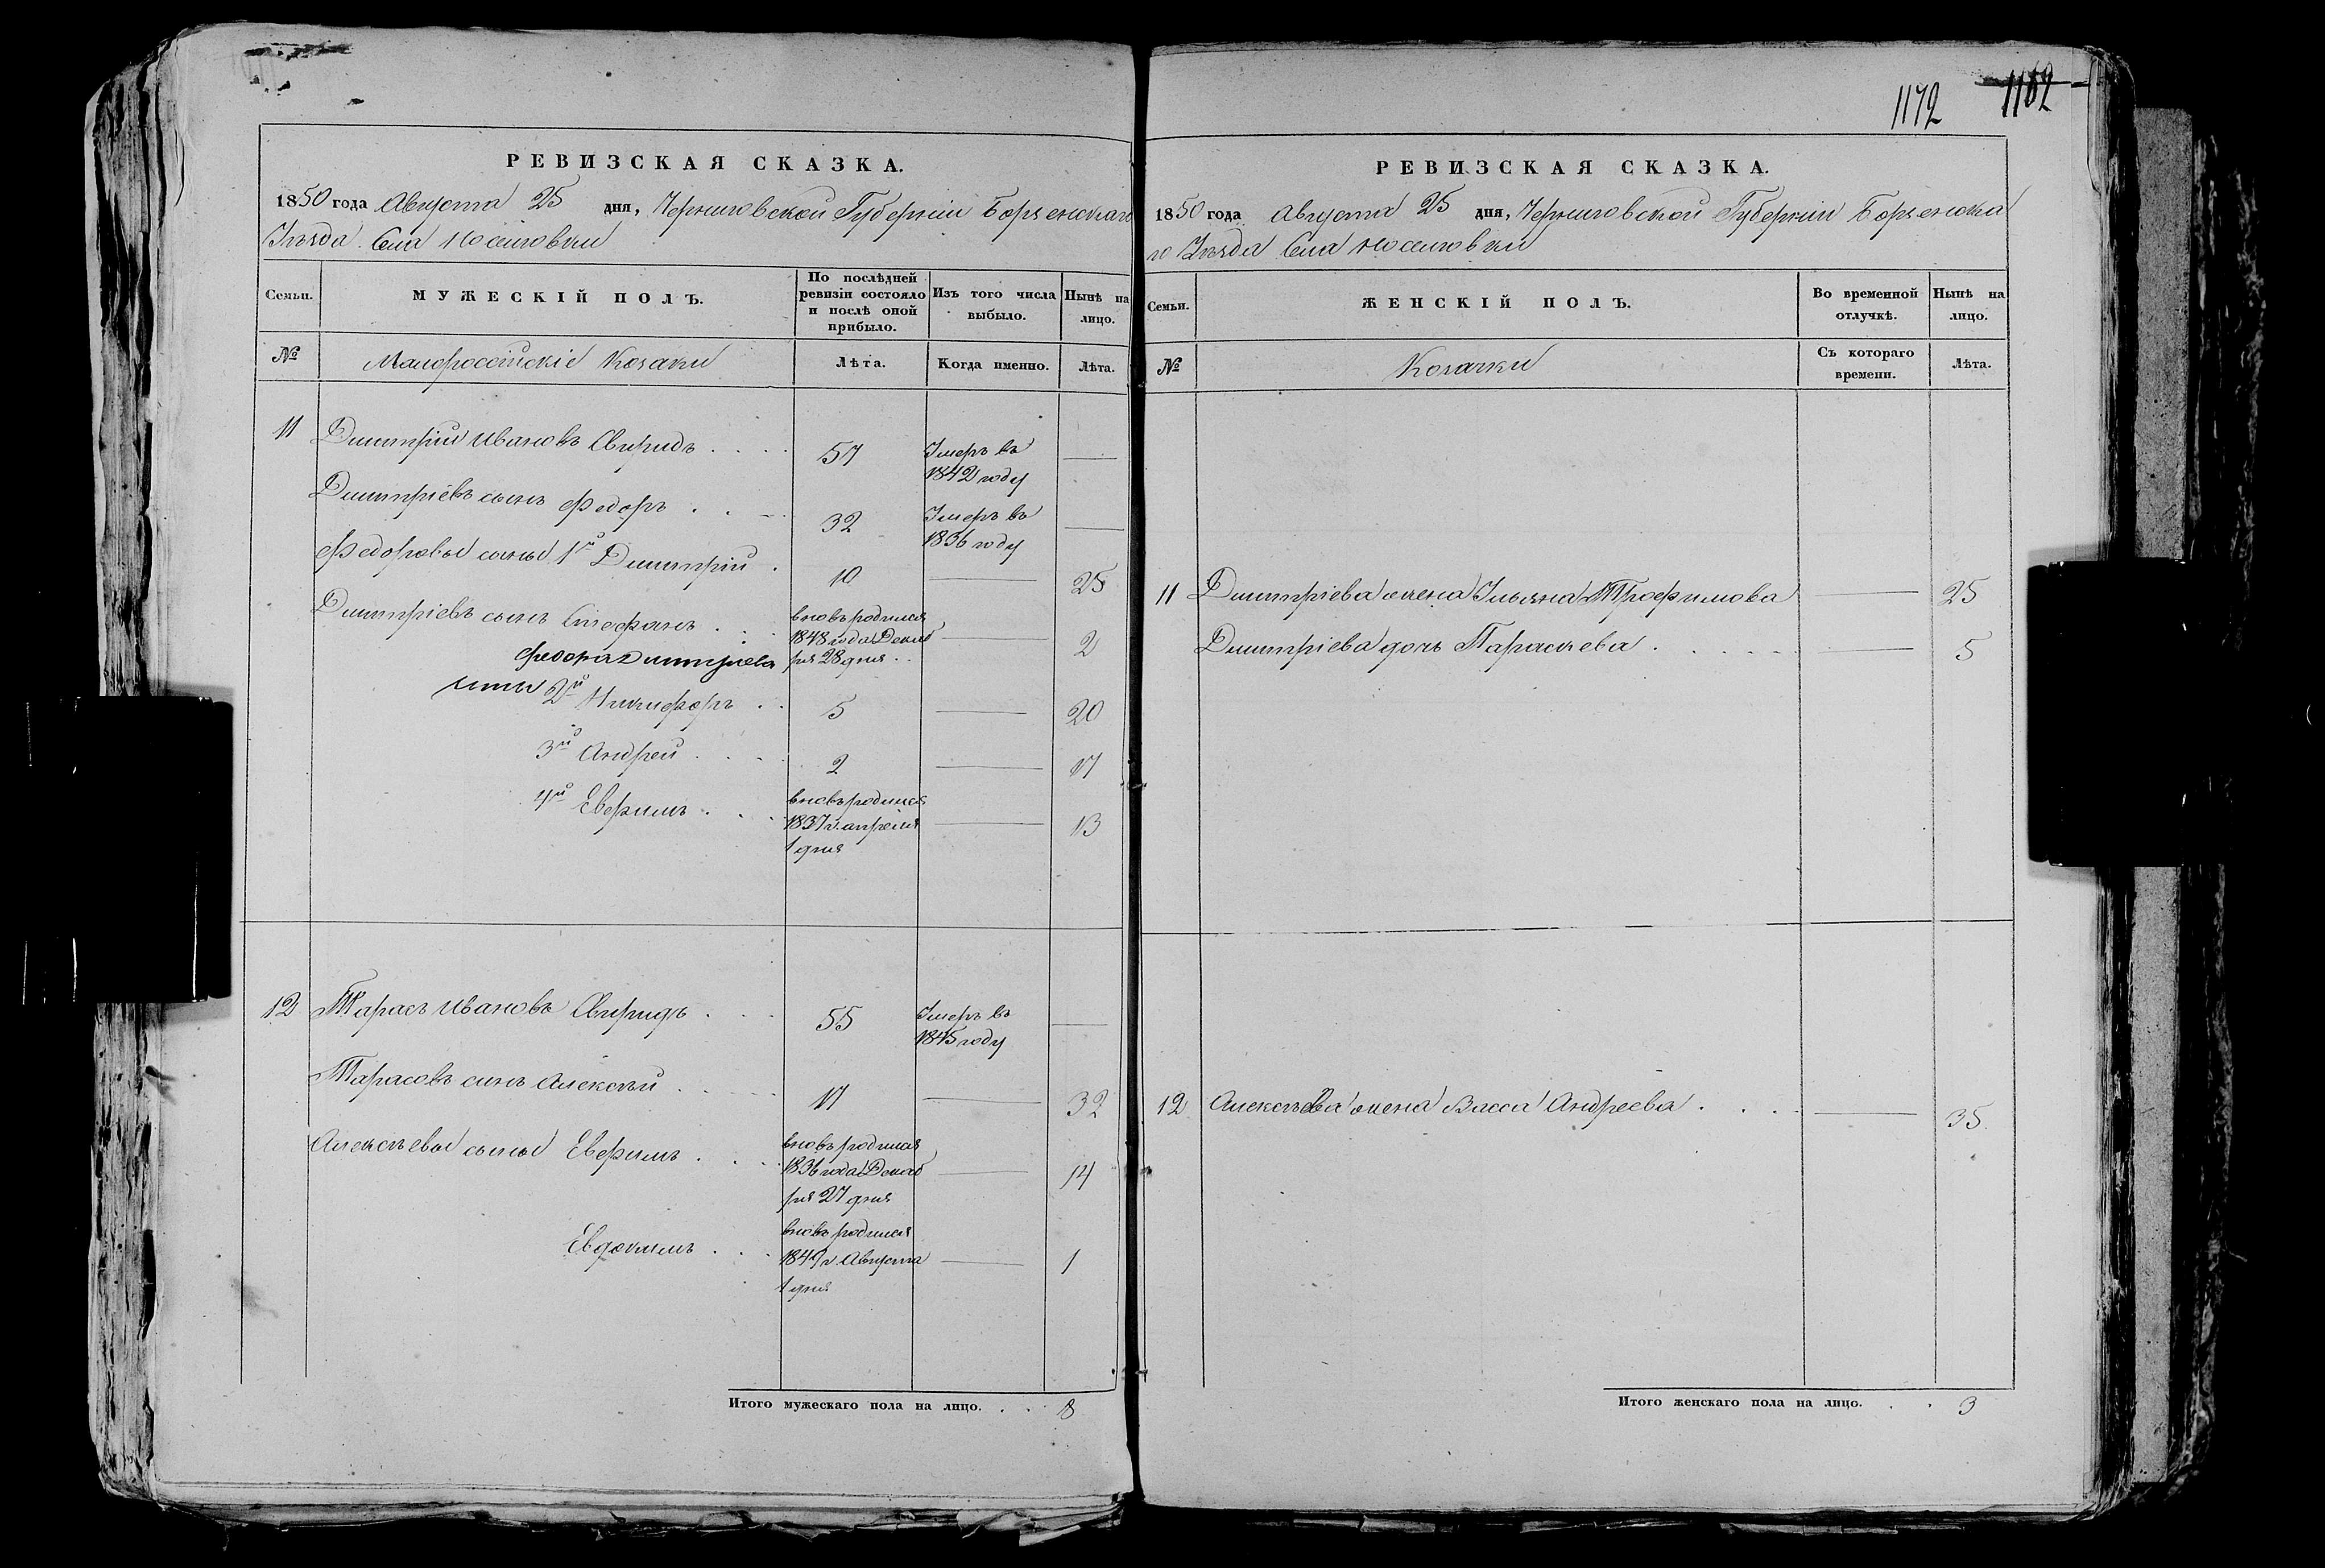 РЕВИЗСКАЯ СКАЗКА.
1850 года Августа 25 дня, Черниговской Губерніи Борзенскаго
Уѣзда Села
Семьи. МУЖЕСКІЙ ПОЛЪ. По послѣдней ревизіи состояло и послѣ оной прибыло. Изъ того числа выбыло. Нынѣ на лицо.
№ Малороссійскіе Козаки Лѣта. Когда именно. Лѣта.
11 Димитрій Ивановъ Свиридъ . . . . 57 Умеръ въ 1842 году —
Димитріевъ сынъ Федоръ . . . 32 Умеръ въ 1836 году —
Федоровы сыны 1й Димитрій . 10 — 25
Димитріевъ сынъ Стефанъ . . . вновь родился 1848 года Декабря 28 дня . . — 2
Федора Димитріева
сыны 2й Никифоръ . . 5 — 20
3й Андрей . . . . 2 — 17
4й Евфимъ . . . вновь родился 1837 г. апрѣля 1 дня — 13
12 Тарасъ Ивановъ Свиридъ . . . 55 Умеръ въ 1845 году —
Тарасовъ сынъ Алексѣй . . . . 17 — 32
Алексѣевы сыны Евфимъ . . . вновь родился 1836 года Декабря 27 дня — 14
Евдокимъ . . . вновь родился 1849 г. Августа 1 дня — 1
Итого мужескаго пола на лицо. . . 8
1172 1162
РЕВИЗСКАЯ СКАЗКА.
1850 года Августа 25 дня, Черниговской Губерніи Борзенска
го Уѣзда Села
Семьи. ЖЕНСКІЙ ПОЛЪ. Во временной отлучкѣ. Нынѣ на лицо.
№ Козачки Съ котораго времени. Лѣта.
11 Димитріева жена Ульяна Трофимова — 25
Димитріева дочь Параскева . . . . . — 5
12 Алексѣева жена Васса Андреева . . . . — 35
Итого женскаго пола на лицо. . . 3